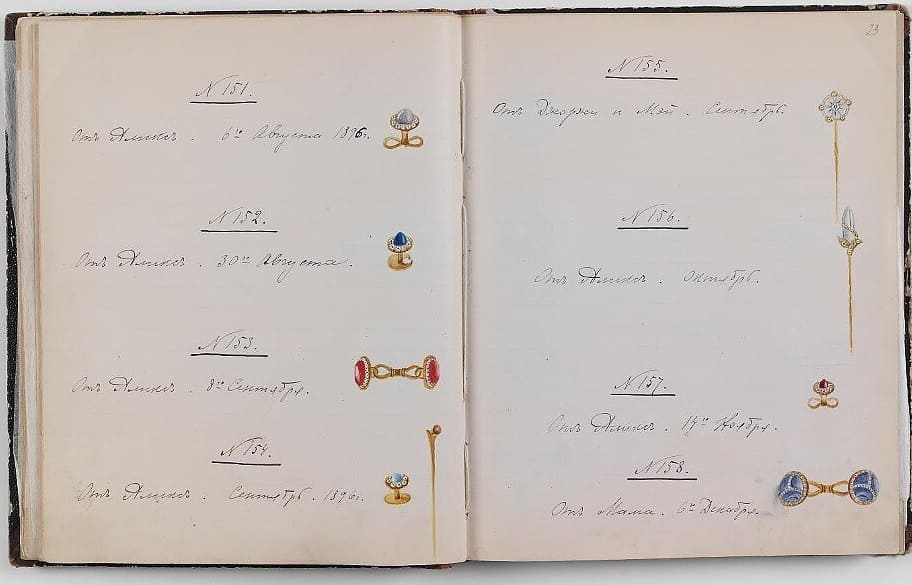 N 151.
Отъ Аликсъ. 6го Августа 1896г.
N 152.
Отъ Аликсъ. 30го Августа.
N 153.
Отъ Аликсъ. 8го Сентября.
N 154.
Отъ Аликсъ. Сентябрь. 1896г.
23
N 155.
Отъ Джоржи и Мэй. Сентябрь.
N 156.
Отъ Аликсъ. Октябрь.
N 157.
Отъ Аликсъ. 14го Ноября.
N 158.
Отъ Мама. 6го Декабря.